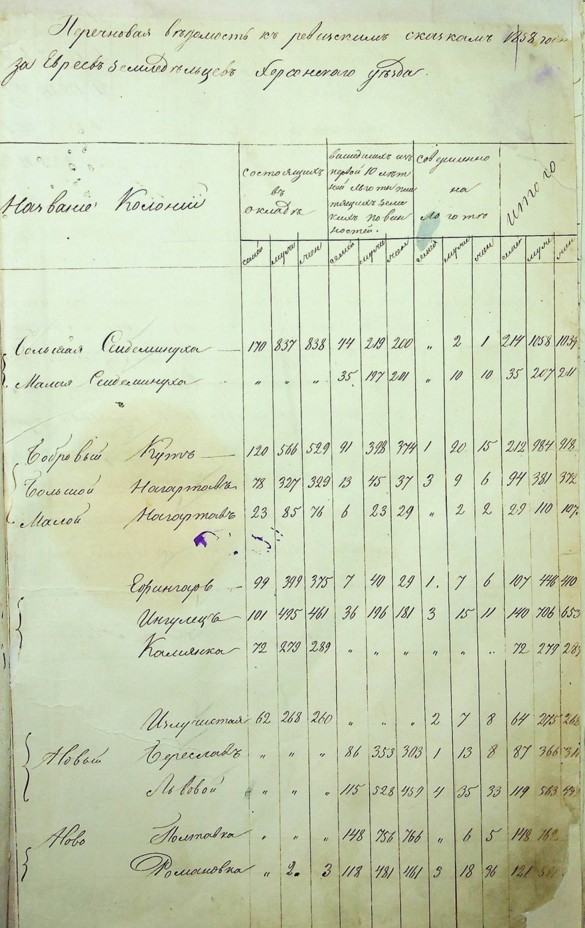 Перечневая вѣдомость къ ревизскимъ сказкамъ 1858 года
за Евреевъ Земледѣльцевъ Херсонскаго уѣзда.
Названіе Колоній
состоящихъ
въ
окладѣ
вышедшихъ изъ
первой 10 лѣт
ней льготы
земс
кихъ повин
ностей.
на
льготѣ
Итого
семей муж жен семей муж жен семей муж жен семей муж жен
Большая Сейдеминуха 170 837 838 44 219 200 „ 2 1 214 1058 1039
Малая Сейдеминуха „ „ „ 35 197 201 „ 10 10 35 207 211
Бобровый Кутъ 120 566 529 91 398 374 1 20 15 212 984 918
Большой Нагартавъ 78 327 329 13 45 37 3 9 6 94 381 372
Малой Нагартавъ 23 85 76 6 23 29 „ 2 2 29 110 107
Ефингаръ 99 399 375 7 40 29 1 7 6 107 446 410
Ингулецъ 101 495 461 36 196 181 3 15 11 140 706 653
Камянка 72 279 289 „ „ „ „ „ „ 72 279 289
Излучистая 62 268 260 „ „ „ 2 7 8 64 275 268
Новый Береславъ „ „ „ 86 353 303 1 13 8 87 366 311
Львовой „ „ „ 115 528 459 4 35 33 119 563
Ново Полтавка „ „ „ 148 756 766 „ 6 5 148 762
Романовка „ 2 3 118 481 461 3 18 36 121